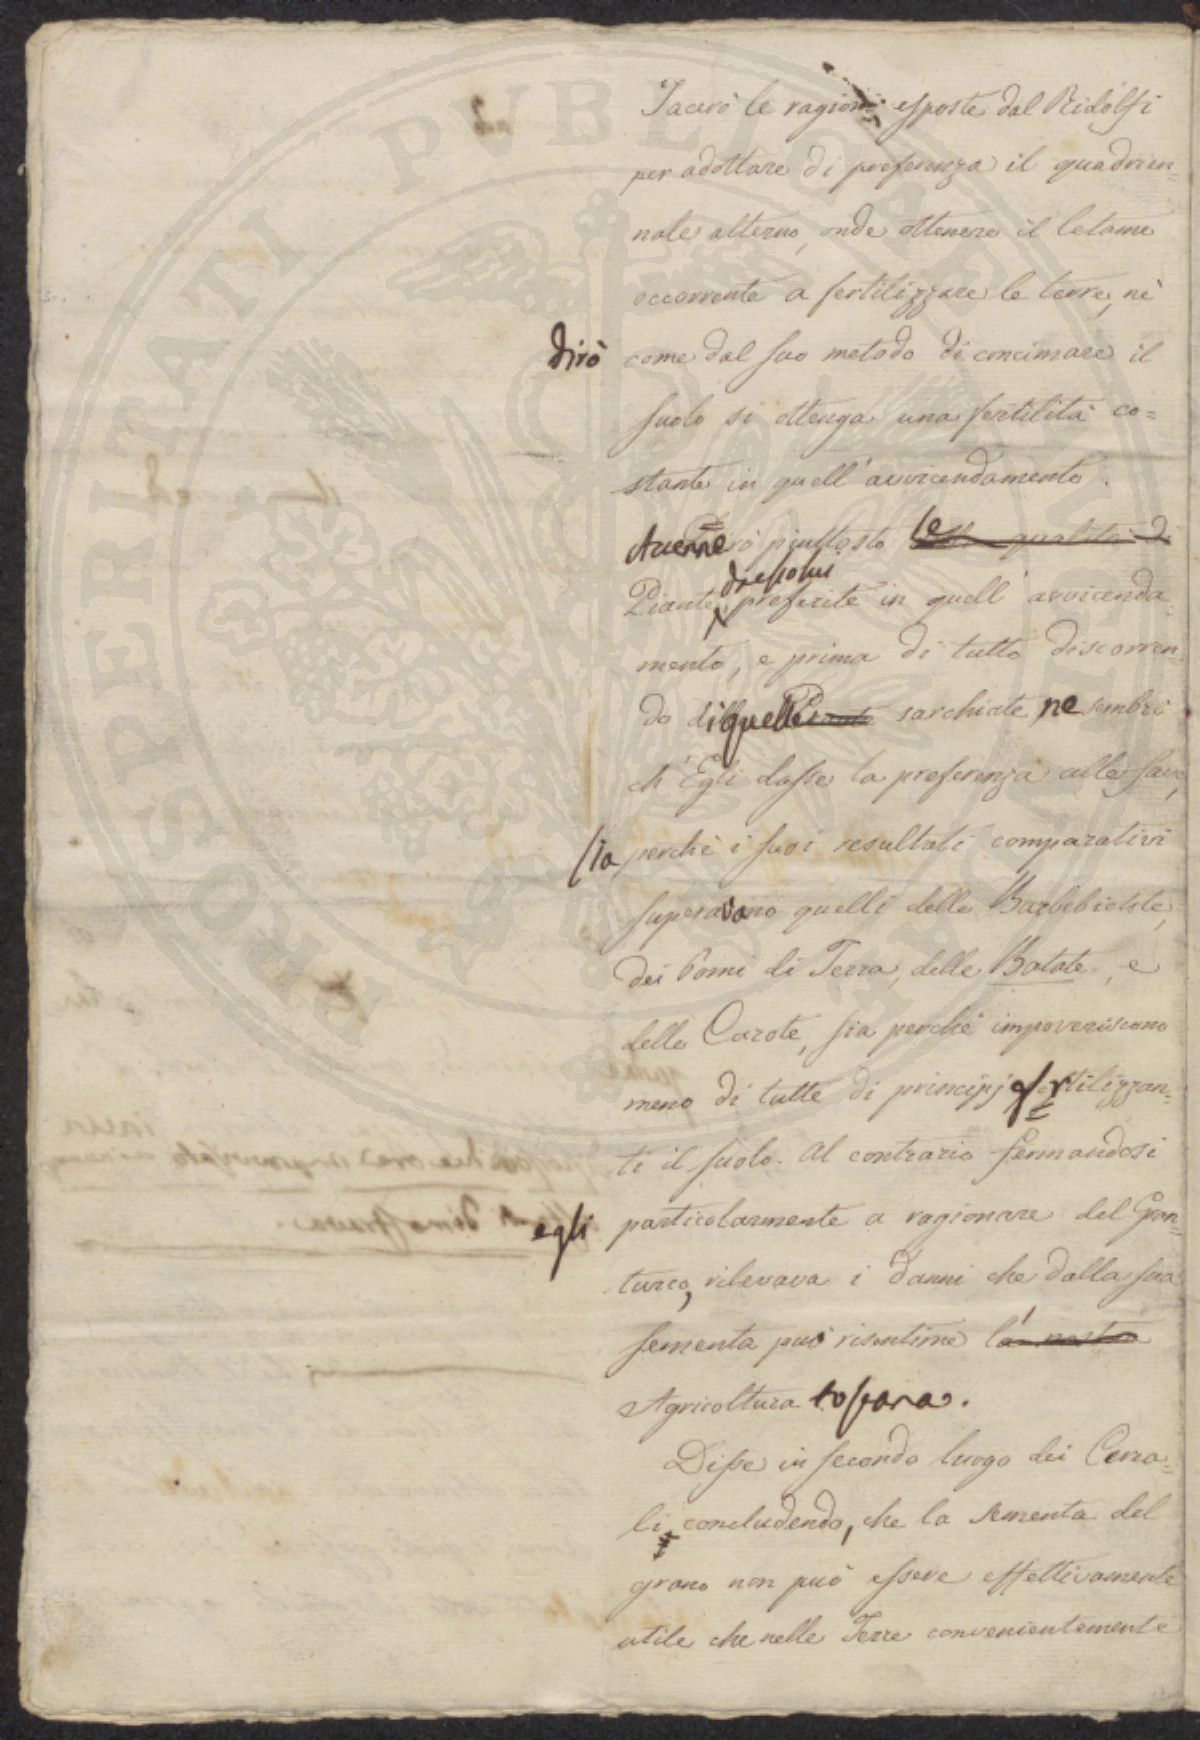 Tacerò le ragioni esposte dal Ridolfi
per adottare di preferenza il quadrien=
nale alterno, onde ottenere il letame
occorrente a fertilizzare le terre, nè
dirò come dal suo metodo di concimare il
suolo si ottenga una fertilità co=
stante in quell'avvicendamento.
Accennerò piuttosto le qualità di
Piante preferite in quell'avvicenda=
mento, e prima di tutto discorren
do di quelle sarchiate, ne sembrò
ch'Egli dasse la preferenza alle fave,
sia perchè i suoi resultati comparativi
superavano quelli delle Barbebietole,
dei Pomi di Terra, delle Batate, e
delle Carote, sia perchè impoveriscono
meno di tutte di principj fertilizzan=
ti il suolo. Al contrario fermandosi
egli particolarmente a ragionare del Gran=
turco, rilevava i danni che dalla sua
sementa può risentirne l'
Agricoltura toscana.
Disse in secondo luogo dei Cerea=
li concludendo, che la sementa del
grano non può essere effettivamente
utile che nelle Terre convenientemente